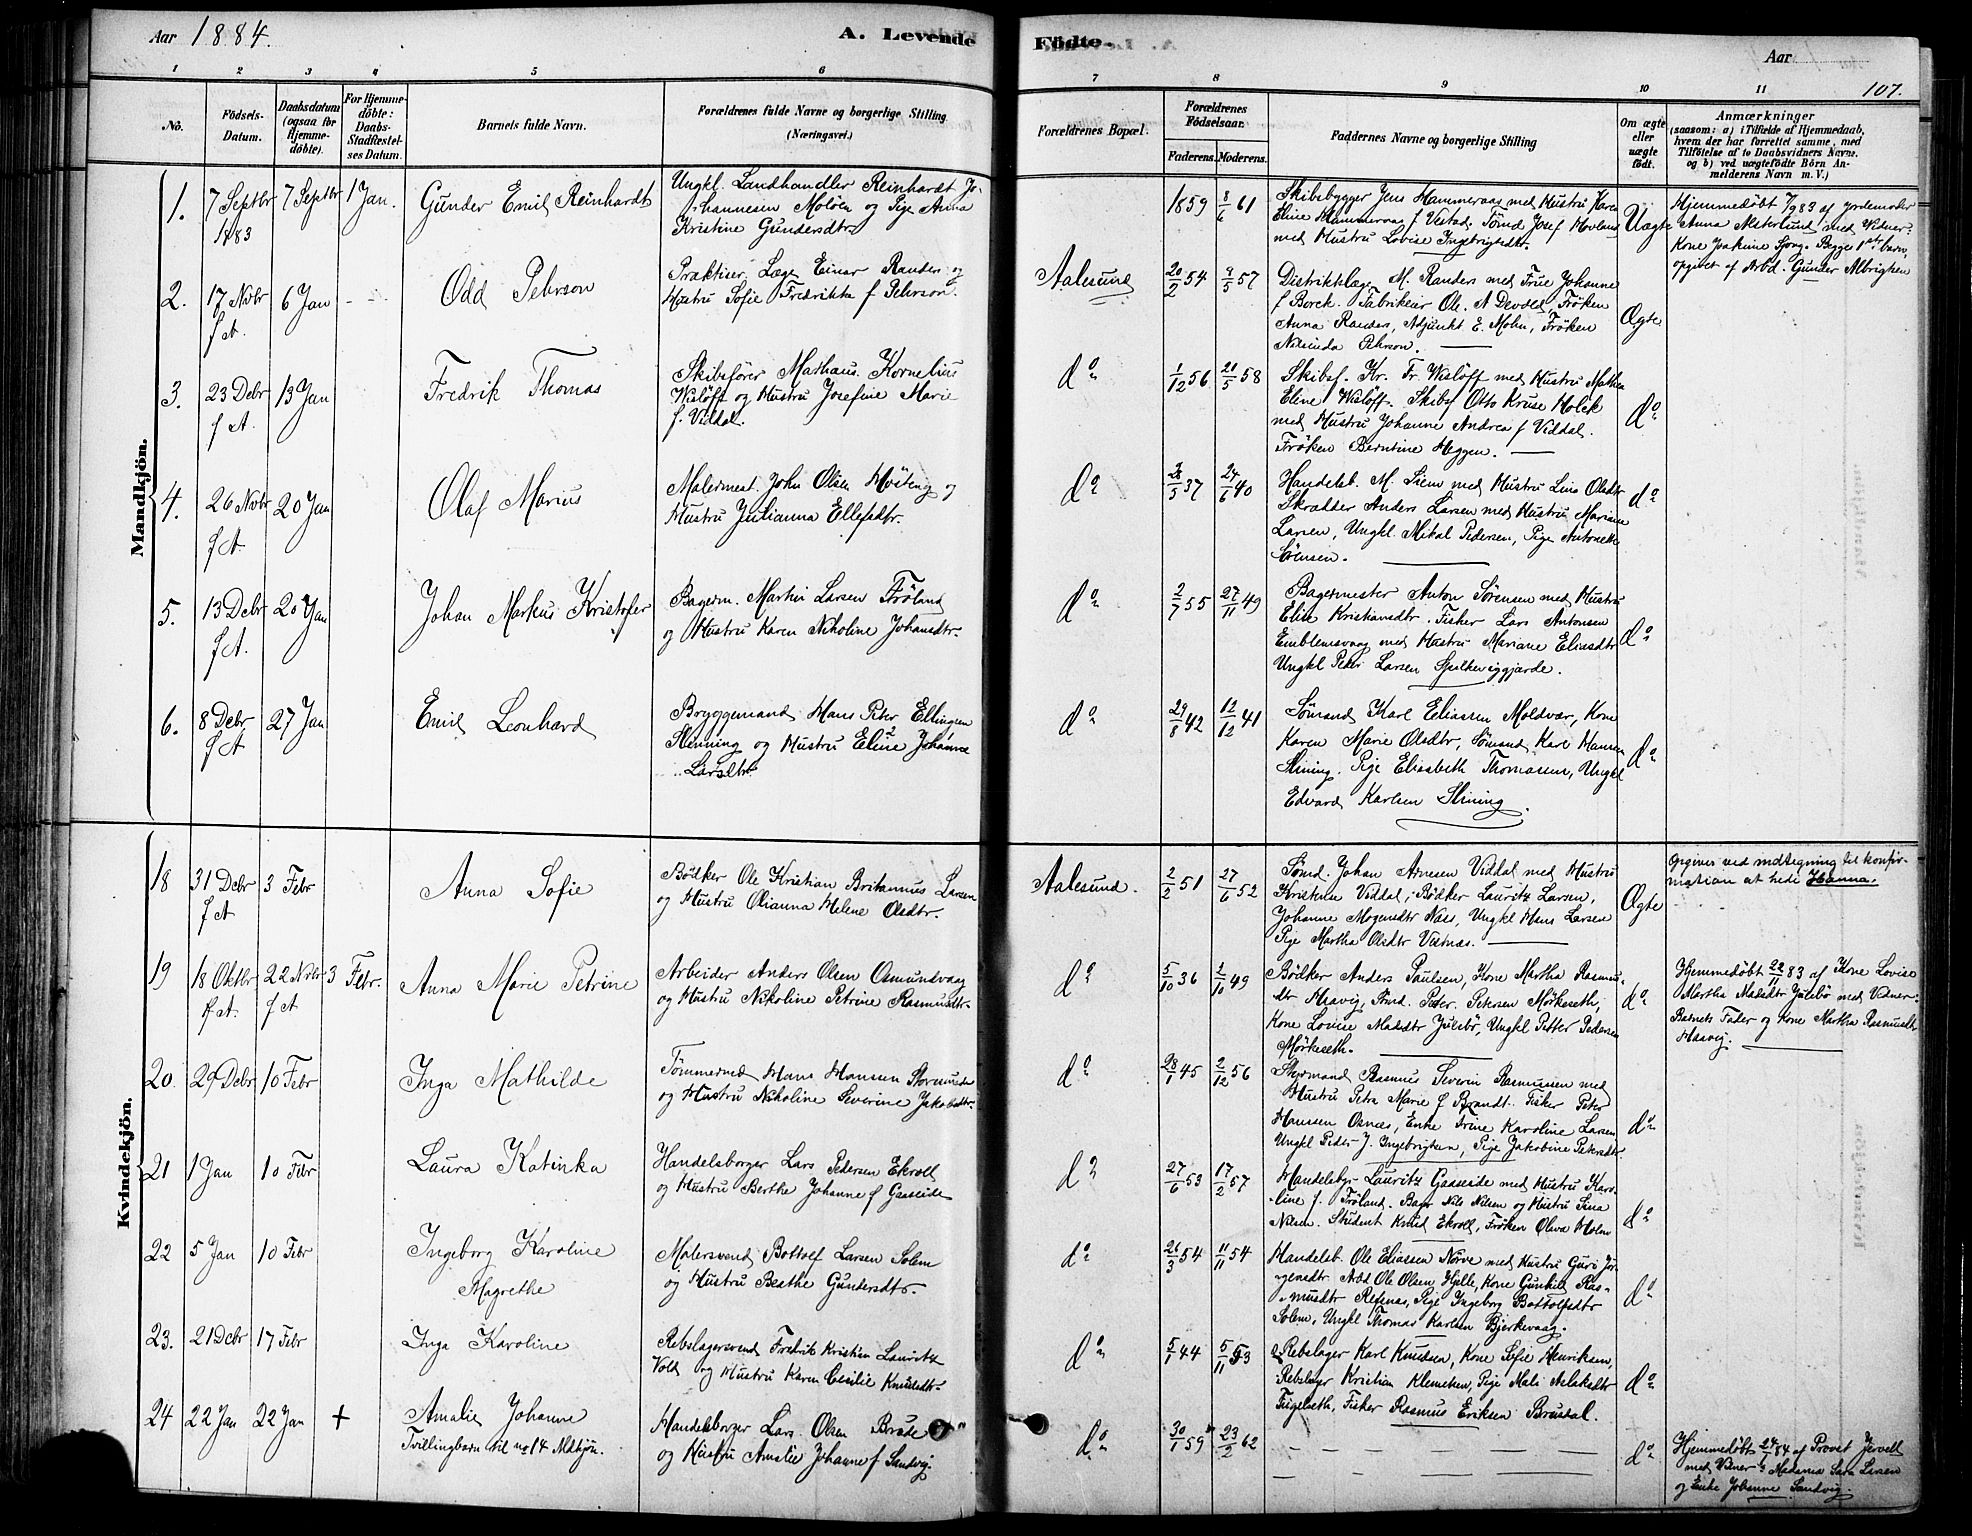 Aar 1884.
A. Levende
Fødte.
Aar
107.
1 2 3 4 5 6 7 8 9 10 11
No.
Fødsels-Datum.
Daabsdatum (ogsaa for Hjemmedøbte).
For Hjemmedøbte: Daabs-Stadfæstelses Datum.
Barnets fulde Navn.
Forældrenes fulde Navne og borgerlige Stilling (Næringsvei.)
Forældrenes Bopæl.
Forældrenes Fødselsaar.
Faderens. Moderens.
Faddernes Navne og borgerlige Stilling
Om ægte eller uægte født.
Anmærkninger
(saasom: a) i Tilfælde af Hjemmedaab, hvem der har forrettet samme, med Tilføielse af to Daabsvidners Navne, og b) ved uægtefødte Børn Anmelderens Navn m. V.)
Mandkjön.
1. 7 Septbr 1883 7 Septbr 1 Jan. Gunder Emil Reinhardt
Ungkl. Landhandler Reinhardt Johannesen Moløen og Pige Anna
Kristine Gundersdtr
1859 8/6 61
Skibsbygger Jens Hammeraas med Hustru Karen
Eline Hammervaag f Vestad, Sømd Josef Hovland
med Hustru Lovise Ingebrigtsdtr.
Uægte
Hjemmedøbt 7/9 83 af Jordemoder
Anna Østerlund med Vidner
Kone Joakime Sjong. Begge 1ste barn,
opgivet af Arbd. Gunder Albrigtsen
2. 17 Novbr f A. 6 Jan - -
Odd Pehrson
Praktiser. Læge Einar Randers og
Hustru Sofie Fredrikke f Pehrson.
Aalesund 20/2 54 9/5 57
Distriktslæge M. Randers med Frue Johanne
f Borck. Fabrikeier Ole. A Devold, Frøken
Anna Randers, Adjunkt E. Mohn, Frøken
Pehrson.
Ægte
3. 23 Debr f A. 13 Jan
Fredrik Thomas
Skibsfører Mathæus Kornelius
Wisløff og Hustru Josefine Marie
f. Viddal.
do 1/12 56 21/5 58
Skibsf. Kr. Fr. Wisløff med Hustru Mathea
Eline Wisløff. Skibsf Otto Kruse Holck
med Hustru Johanne Andrea f Viddal.
Frøken Berntine Heggen.
do
4. 26 Novbr f A. 20 Jan
Olaf Marius
Malermest. John Olsen og
Hustru Julianna Ellefsdtr.
do 28/5 37 24/6 40
Handelsb. M. Siem med Hustru Line Olsdtr
Skrædder Anders Larsen med Hustru Mariane
Larsen, Ungkl. Mikal Pedersen, Pige Antonette
Sørensen.
do
5. 13 Debr f A. 20 Jan
Johan Markus Kristofer
Bagerm. Martin Larsen Frøland
og Hustru Karen Nikoline Johansdtr.
do 2/7 55 27/11 49
Bagermester Anton Sørensen med Hustru
Elise Kristiansdtr. Fisker Lars Antonsen
Emblemsvaag med Hustru Mariane Eliasdtr
Ungkl Peter Larsen Spjelkeviggjærde.
do
6. 8 Debr f A 27 Jan
Emil Leonhard
Bryggemand Hans Peter Ellingsen
Slinning og Hustru Eline Johanne
Larsdtr
do 29/8 42 12/12 41
Sømand Karl Eliassen Moldvær, Kone
Karen Marie Olsdtr, Sømand Karl Hansen
Slining. Pige Elisabeth Thomasen, Ungkl
Edvard Karlsen Slining.
do
Kvindekjön.
18 31 Debr f A 3 Febr
Anna Sofie
Bødker Ole Kristian Britannus Larsen
og Hustru Olianna Helene Olsdtr.
Aalesund. 2/2 51 27/6 52
Sømd. Johan Arnesen Viddal med Hustru
Kristense Viddal, Bødker Lauritz Larsen,
Johanne Mogensdtr Næss, Ungkl Hans Larsen
Pige Martha Olsdtr Vestnæs.
Ægte
Opgives ved indtegning til konfirmation at hede Hanna.
19 18 Oktbr f A. 22 Novbr f A 3 Febr.
Anna Marie Petrine
Arbeider Anders Olsen Osmundsvaag
og Hustru Nikoline Petrine Rasmusdtr.
do 5/10 36 2/10 49
Bødker Anders Paulsen, Kone Martha Rasmusdtr Haavig, Sømd. Peter Petersen Mørkeseth,
Kone Lovise Madsdtr Julsbø, Ungkl Petter Pedersen
Mørkeseth.
do
Hjemmedøbt 22/11 83 af Kone Lovise
Martha Madsdtr Julsbø med Vidner
Barnets Fader og Kone Martha Rasmusdtr
Haavig.
20. 29 Debr 10 Febr
Inga Mathilde
Tømmermd Hans Hansen
og Hustru Nikoline Severine Jakobsdtr.
do 28/1 45 2/12 56
Styrmand Rasmus Severin Rasmussen med
Hustru Petra Marie f Brandt. Fisker Peter
Hanssen Osnes, Enke Trine Karoline Larsen
Ungkl Peder J. Ingebrigtsen, Pige Jakobine Petersdtr
do
21 1 Jan 10 Febr
Laura Katinka
Handelsborger Lars Pedersen Ekroll
og Hustru Berthe Johanne f Gaaseide
do 27/6 53 17/2 57
Handelsbgr. Lauritz Gaaseide med Hustru Karoline f. Frøland. Bager Nils Nilsen og Hustru Sina
Nilsen. Student Knud Ekroll, Frøken Oliva Holm
do
22 5 Jan 10 Febr
Ingeborg Karoline
Magrethe
Malersvend Bottolf Larsen Solem
og Hustru Berthe Gundersdtr.
do 21/3 54 11/11 54
Handelsb. Ole Eliassen Nørve med Hustru Guro Jørgensdtr Arbd Ole Olsen Hjelle, Kone Gunhild Rasmusdtr Refsnæs, Pige Ingeborg Bottolfsdtr
Solem, Ungkl Thomas Karlsen Bjerkevaag.
do
23. 21 Debr 17 Febr
Inga Karoline
Rebslagersvend Fredrik Kristian Lauritz
Vold og Hustru Karen Cecilie Knudsdtr.
do 5/1 44 5/11 53
Rebslager Karl Knudsen, Kone Sofie Henriksen,
Rebslager Kristian Klemetsen, Pige Mali Aslaksdtr
Fugelseth, Fisker Rasmus Eriksen Brusdal.
do
24 22 Jan 22 Jan +
Amalie Johanne
Tvillingbarn til no 14 Mdkjøn.
Handelsborger Lars Olsen Brude
og Hustru Amalie Johanne f Sandvig.
do 30/1 59 23/2 62
do
Hjemmedøbt 22/1 84 af Provst Jervell
med Vidner: Madame Sara Larsen
og Enke Johanne Sandvig.